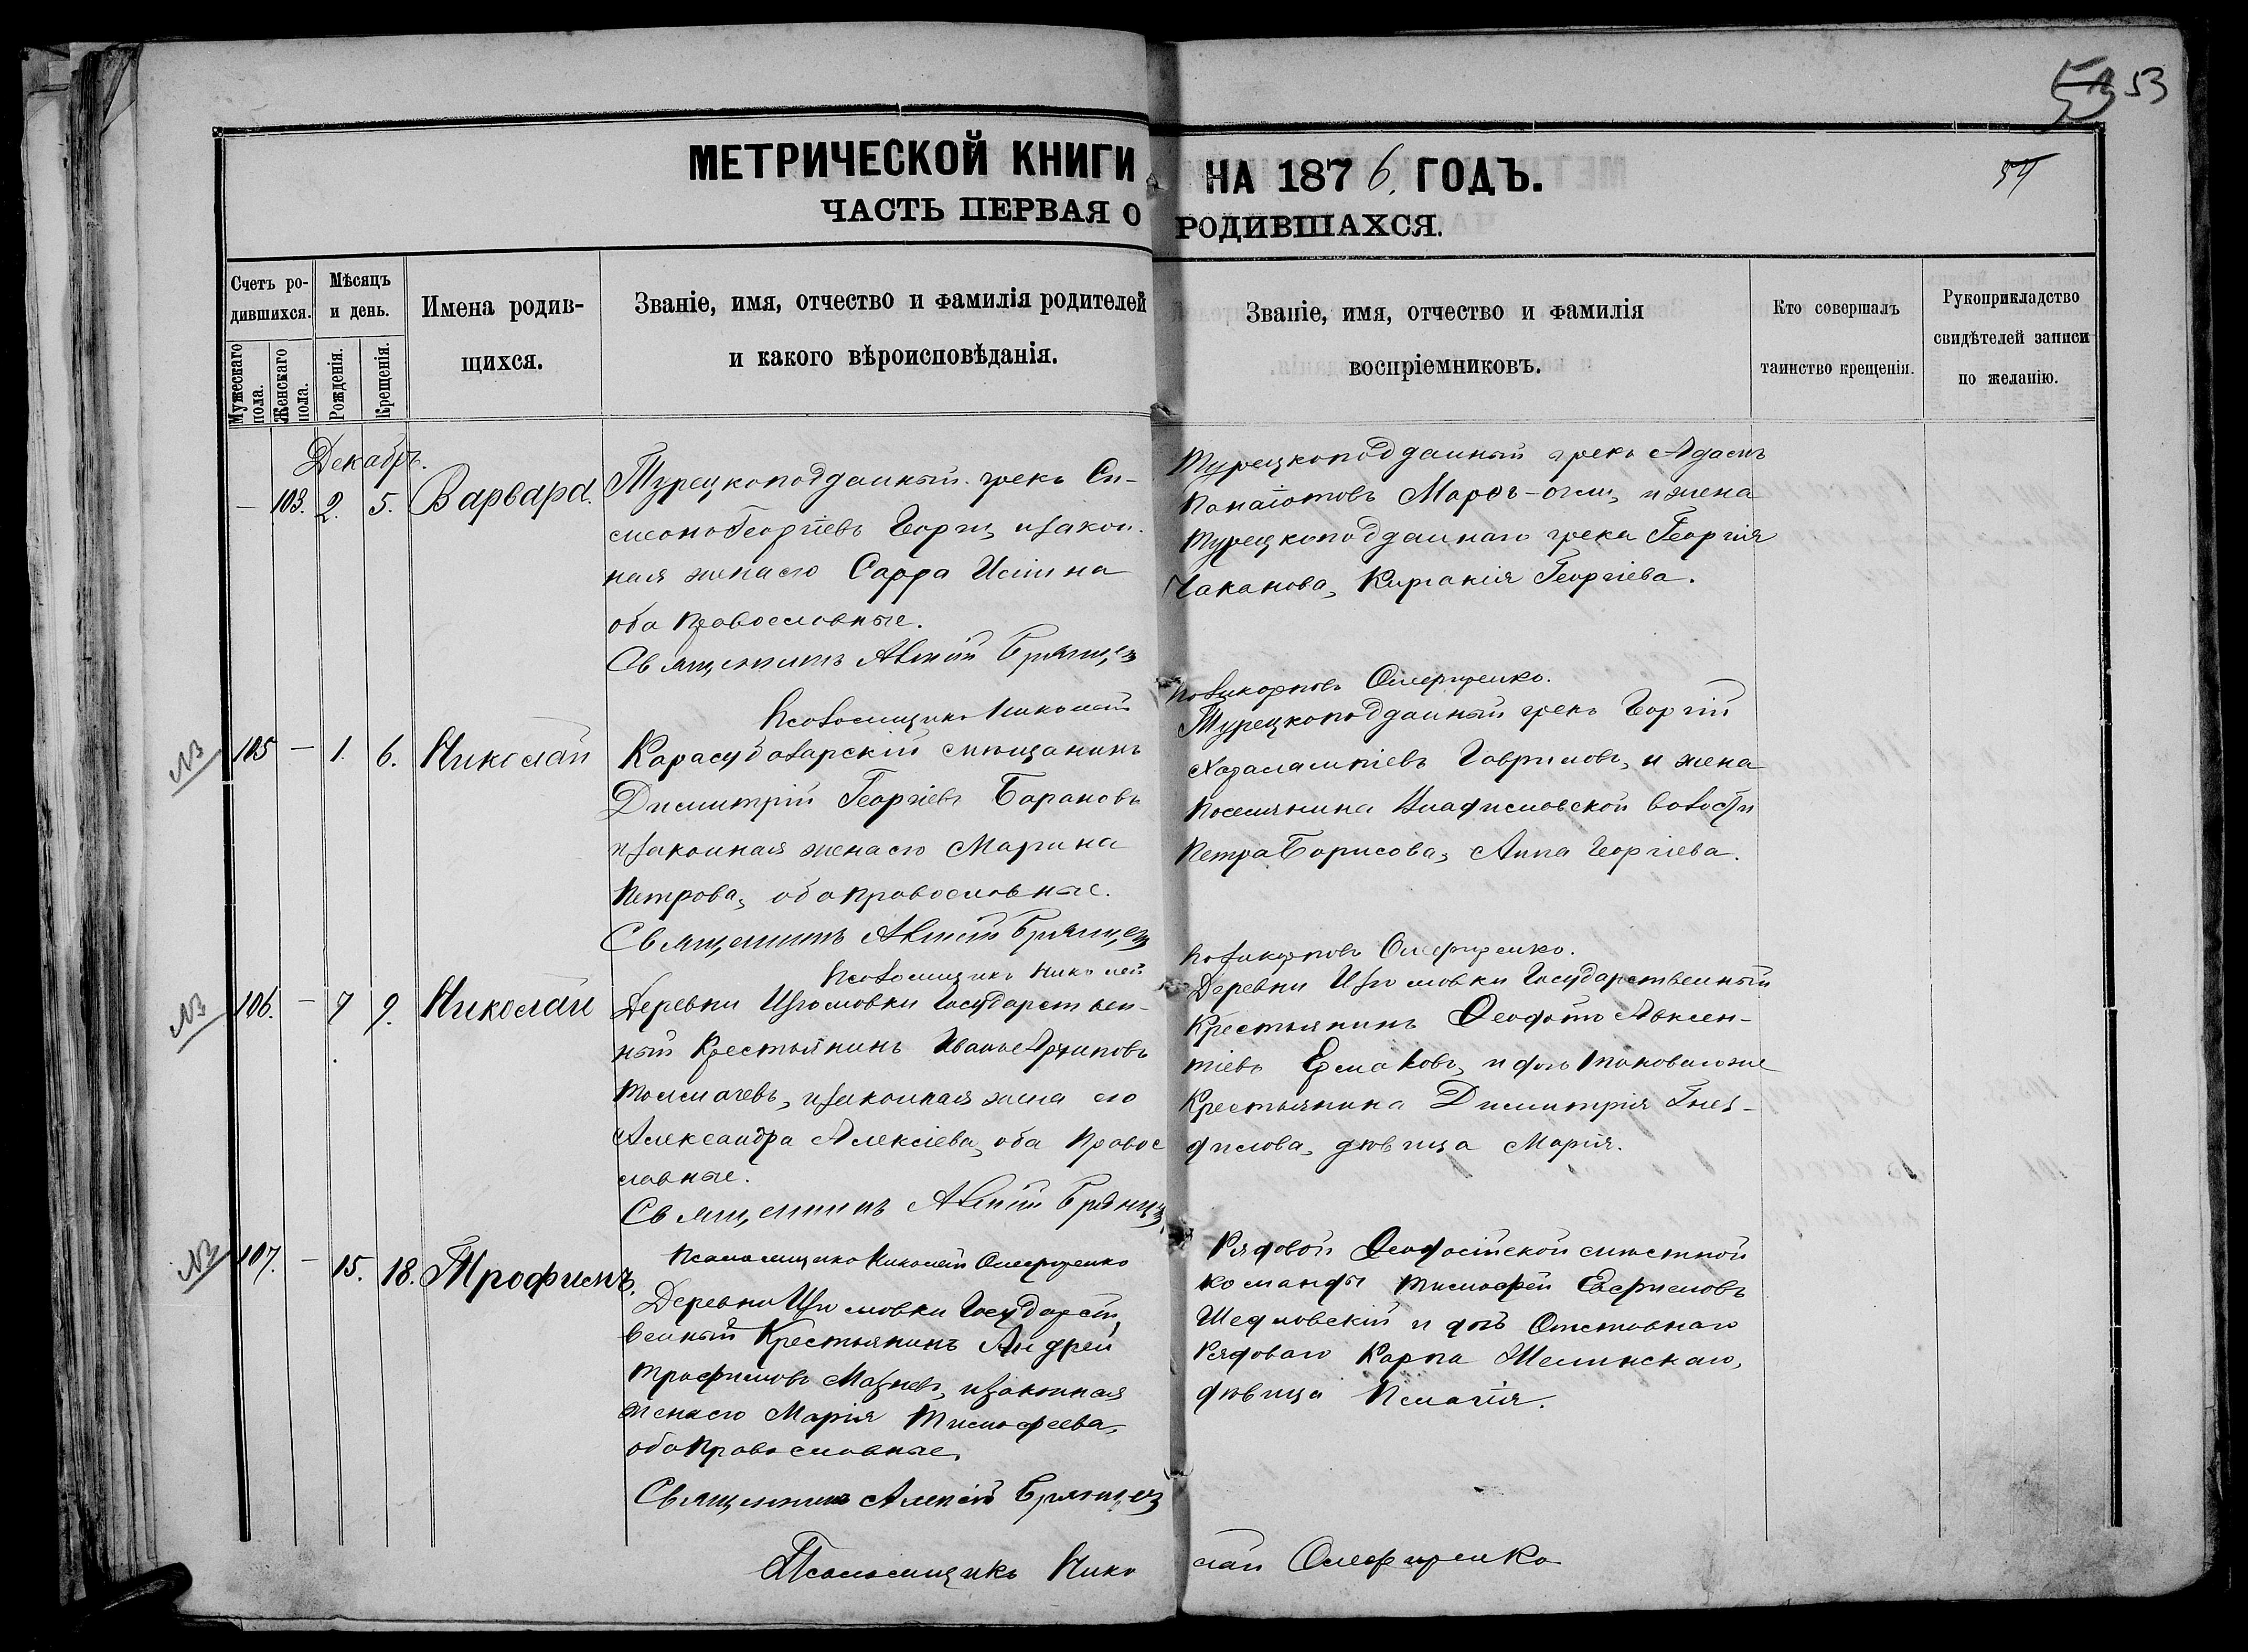 53 53
МЕТРИЧЕСКОЙ КНИГИ НА 1876 ГОДЪ.
54
ЧАСТЬ ПЕРВАЯ О РОДИВШАХСЯ.
Счетъ ро-
дившихся.
Мужескаго пола.
Женскаго пола.
Мѣсяцъ
и день.
Рожденія.
Крещенія.
Имена родив-
щихся.
Званіе, имя, отчество и фамилія родителей
и какого вѣроисповѣданія.
Званіе, имя, отчество и фамилія
воспріемниковъ.
Кто совершалъ
таинство крещенія.
Рукоприкладство
свидѣтелей записи
по желанію.
Декабрь.
— 103. 2. 5. Варвара.
Турецкоподданный грекъ Си-
меонъ Георгіевъ и закон-
ная жена его Сарра
оба православные.
Священникъ Алексій Брянцев
Псаломщикъ Николай
Турецкоподданный грекъ Адамъ
Панаіотовъ и жена
турецкоподданнаго грека Георгія
Чаканова, Киріакія Георгіева.
Поликарповъ Олефиренко.
NB 105 — 1. 6. Николай
Карасубазарскій мѣщанинъ
Димитрій Георгіевъ Барановъ
и законная жена его Марина
Петрова, оба православные.
Священникъ Алексій Брянцев
Псаломщикъ Николай
Турецкоподданный грекъ Георгій
Харалампіевъ Гавриловъ, и жена
поселянина Владиславской волости
Петра Борисова, Анна Георгіева.
Поликарповъ Олефиренко.
NB 106. — 7 9. Николай
Деревни Изюмовки Государствен-
ный Крестьянинъ Иванъ Архиповъ
Толмачевъ, и законная жена его
Александра Алексіева, оба правос
лавные.
Священникъ Алексій Брянцев
Псаломщикъ Николай Олефиренко
Деревни Изюмовки Государственный
Крестьянинъ Ѳеодотъ Авксен-
тіевъ Ермаковъ, и дочь таковаго же
Крестьянина Димитрія Гнез-
дилова, дѣвица Марія.
NB 107. — 15. 18. Трофимъ.
Деревни Изюмовки Государст
венный Крестьянинъ Андрей
Трофимовъ Мазневъ, и законная
жена его Марія Тимофеева,
оба православные.
Священникъ Алексій Брянцев
Рядовой Ѳеодосійской мѣстной
команды Тимофей Ефимовъ
Шедловскій и дочь Отставнаго
Рядоваго Карпа
дѣвица Пелагія.
Псаломщикъ Николай Олефиренко